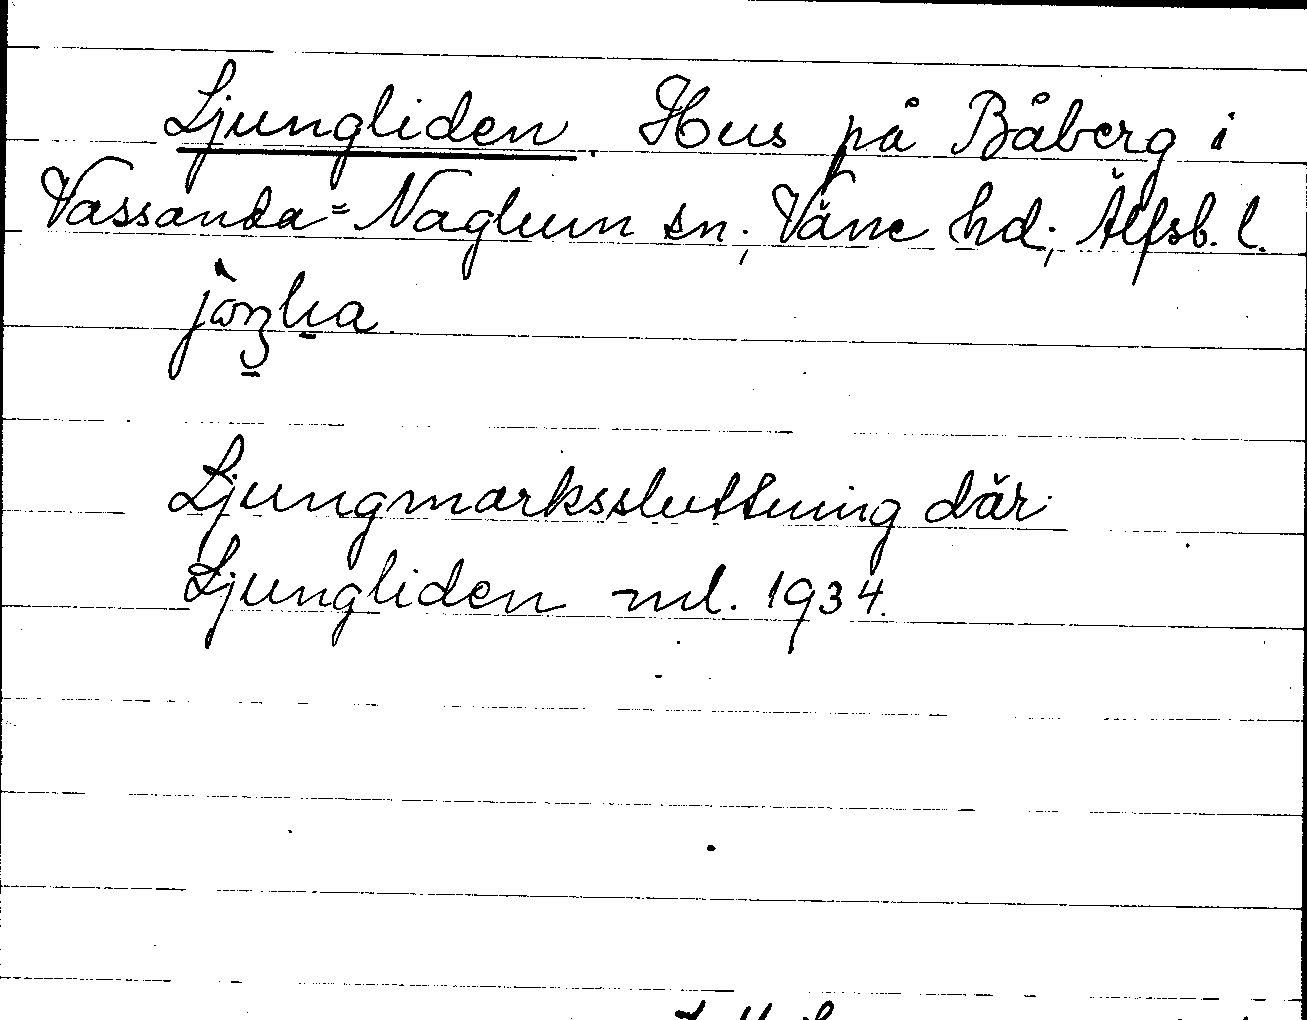 Ljungliden. Hus på Båberg i
Vassanda-Naglum sn; Väne hd; Älfsb. l.
Ljungmarkssluttning där
Ljungliden ml. 1934.